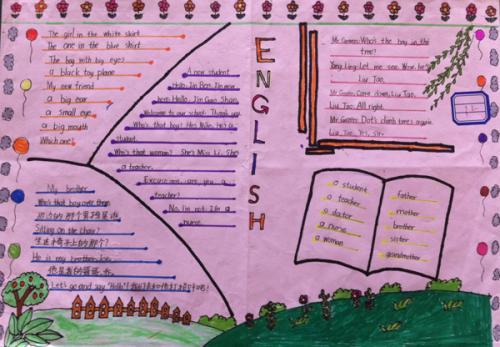 The girl in the white skirt
The one in the blue skirt
The boy with big eyes
a black toy plane
My new friend
a big ear
a small eye
a big mouth
Which one
A new student
Hello. I'm Ben. I'm new
here. Hello. I'm Gao Shan.
Welcome to our school. Thank you.
Who's that boy? He's Mike. He's a
student.
Who's that woman? She's Miss Li. She
a teacher.
Excuse me, are you a
teacher?
No, I'm not. I'm a
nurse.
My brother
Who's that boy over there
Sitting on the chair?
生在椅子上的那个?
He is my brother
Let's go and say "Hello"!
ENGLISH
Mr Green: Who's the boy in the
tree?
Yang Ling: Let me see. Wow, he's
Liu Tao.
Mr Green: Come down, Liu Tao.
Liu Tao: All right.
Mr Green: Don't climb trees again.
Liu Tao: Yes, sir.
a student
a teacher
a doctor
a nurse
a woman
father
mother
brother
sister
grandmother